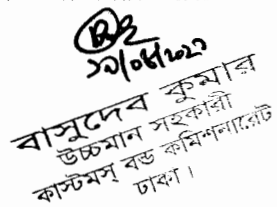 ১৯/০৪/২০২১
বাসুদেব কুমার
উচ্চমান সহকারী
কাস্টমস্ বন্ড কমিশনারেট
ঢাকা।